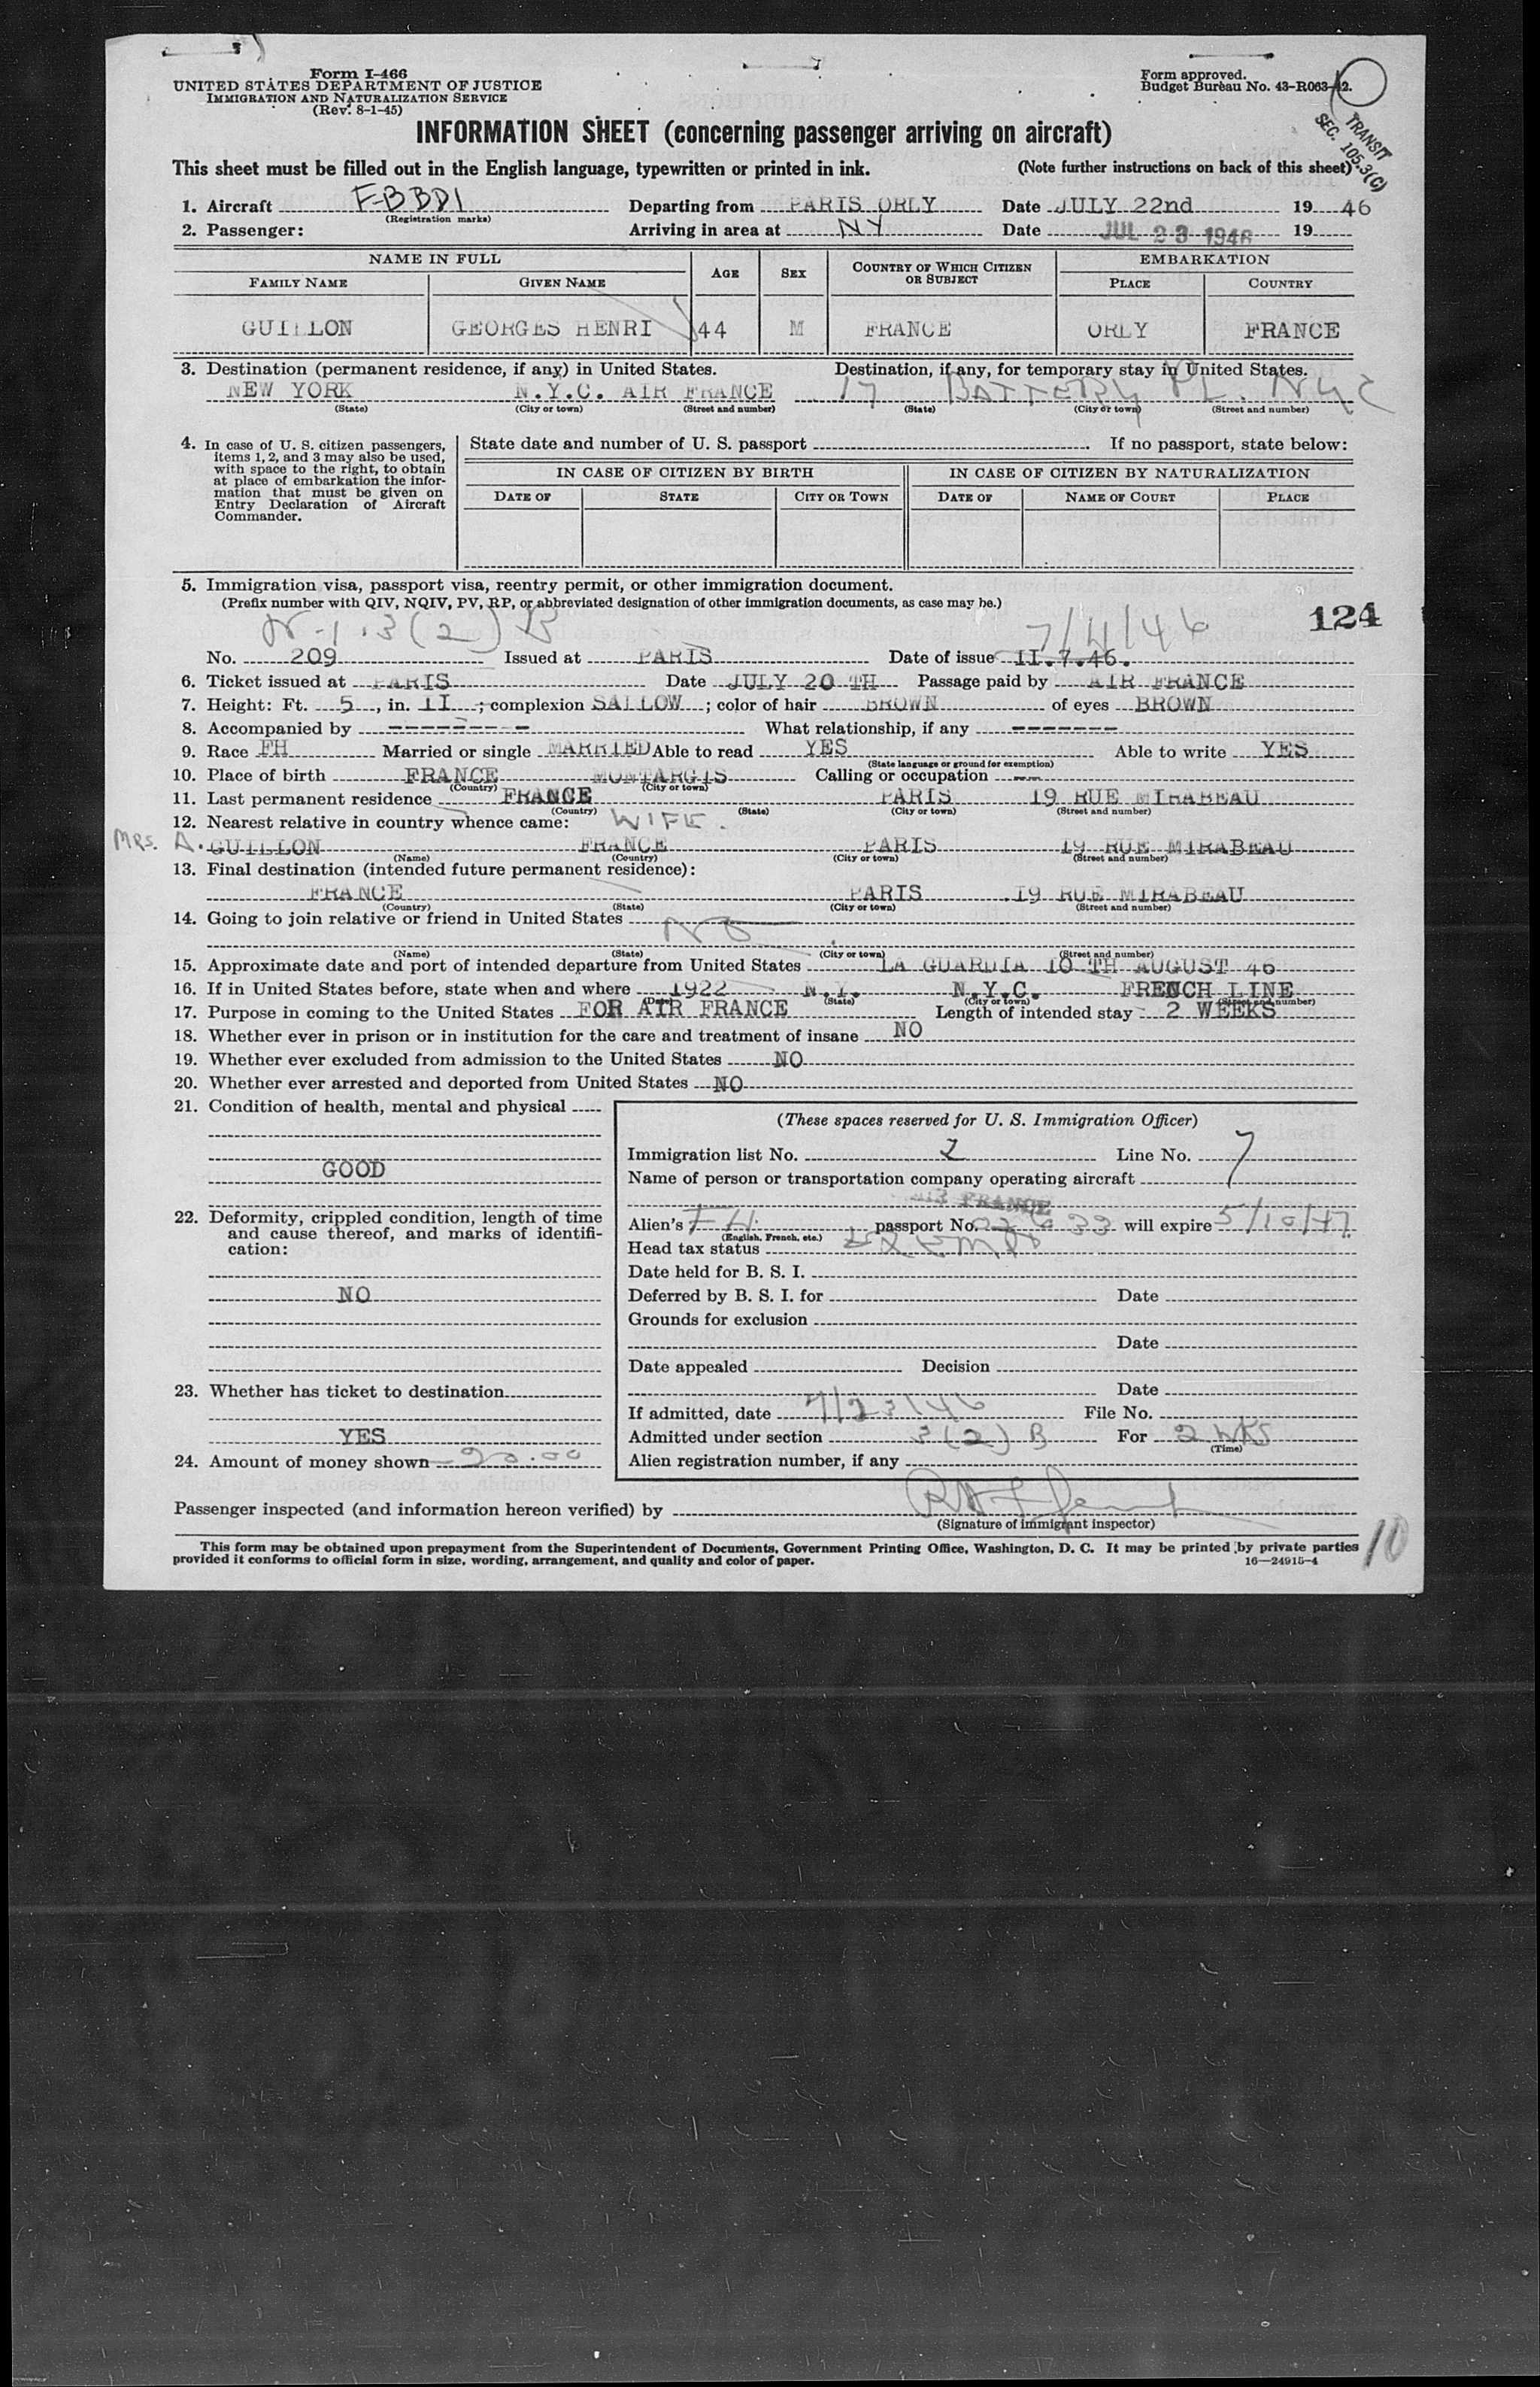 Form I-466
UNITED STATES DEPARTMENT OF JUSTICE
IMMIGRATION AND NATURALIZATION SERVICE
(Rev. 8-1-45)
Form approved.
Budget Bureau No. 43-R063-42.
TRANSIT
SEC. 105.3(C)
INFORMATION SHEET (concerning passenger arriving on aircraft)
This sheet must be filled out in the English language, typewritten or printed in ink. (Note further instructions on back of this sheet)
1. Aircraft F-BBDI Departing from PARIS ORLY Date JULY 22nd 19 46
(Registration marks)
2. Passenger: Arriving in area at NY Date JUL 23 1946 19
NAME IN FULL AGE SEX COUNTRY OF WHICH CITIZEN OR SUBJECT EMBARKATION
FAMILY NAME GIVEN NAME PLACE COUNTRY
GUILLON GEORGES HENRI 44 M FRANCE ORLY FRANCE
3. Destination (permanent residence, if any) in United States. Destination, if any, for temporary stay in United States.
NEW YORK N.Y.C. AIR FRANCE 17 BATTERY PL. NYC
(State) (City or town) (Street and number) (State) (City or town) (Street and number)
4. In case of U. S. citizen passengers, items 1, 2, and 3 may also be used, with space to the right, to obtain at place of embarkation the information that must be given on Entry Declaration of Aircraft Commander.
State date and number of U. S. passport If no passport, state below:
IN CASE OF CITIZEN BY BIRTH IN CASE OF CITIZEN BY NATURALIZATION
DATE OF STATE CITY OR TOWN DATE OF NAME OF COURT PLACE
5. Immigration visa, passport visa, reentry permit, or other immigration document.
(Prefix number with QIV, NQIV, PV, RP, or abbreviated designation of other immigration documents, as case may be.)
124
3(2) B 7/11/46
No. 209 Issued at PARIS Date of issue II.7.46.
6. Ticket issued at PARIS Date JULY 20 TH Passage paid by AIR FRANCE
7. Height: Ft. 5, in. II; complexion SALLOW; color of hair BROWN of eyes BROWN
8. Accompanied by --------- What relationship, if any -------
9. Race FH Married or single MARRIED Able to read YES Able to write YES
(State language or ground for exemption)
10. Place of birth FRANCE MONTARGIS Calling or occupation --
(Country) (City or town)
11. Last permanent residence FRANCE PARIS 19 RUE MIRABEAU
(Country) (State) (City or town) (Street and number)
12. Nearest relative in country whence came: WIFE.
MRS. A. GUILLON FRANCE PARIS 19 RUE MIRABEAU
(Name) (Country) (City or town) (Street and number)
13. Final destination (intended future permanent residence):
FRANCE PARIS 19 RUE MIRABEAU
(Country) (State) (City or town) (Street and number)
14. Going to join relative or friend in United States NO
(Name) (State) (City or town) (Street and number)
15. Approximate date and port of intended departure from United States LA GUARDIA 10 TH AUGUST 46
16. If in United States before, state when and where 1922 N.Y. N.Y.C. FRENCH LINE
(Date) (State) (City or town) (Street and number)
17. Purpose in coming to the United States FOR AIR FRANCE Length of intended stay 2 WEEKS
18. Whether ever in prison or in institution for the care and treatment of insane NO
19. Whether ever excluded from admission to the United States NO
20. Whether ever arrested and deported from United States NO
21. Condition of health, mental and physical
GOOD
22. Deformity, crippled condition, length of time and cause thereof, and marks of identification:
NO
23. Whether has ticket to destination
YES
24. Amount of money shown 20.00
(These spaces reserved for U. S. Immigration Officer)
Immigration list No. 2 Line No. 7
Name of person or transportation company operating aircraft
AIR FRANCE
Alien's FH passport No. will expire 5/10/47
(English, French, etc.)
Head tax status EXEMPT
Date held for B. S. I.
Deferred by B. S. I. for Date
Grounds for exclusion
Date
Date appealed Decision
Date
If admitted, date 7/23/46 File No.
Admitted under section 3(2) B For 2 WKS
(Time)
Alien registration number, if any
Passenger inspected (and information hereon verified) by
(Signature of immigrant inspector)
This form may be obtained upon prepayment from the Superintendent of Documents, Government Printing Office, Washington, D. C. It may be printed by private parties
provided it conforms to official form in size, wording, arrangement, and quality and color of paper. 16—24915-4
10